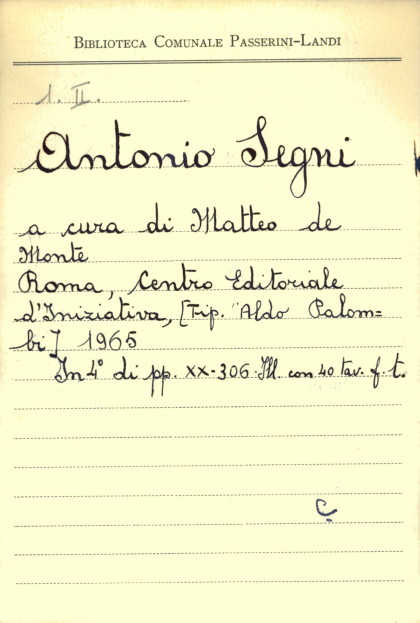 BIBLIOTECA COMUNALE PASSERINI-LANDI
1. II.
Antonio Segni
a cura di Matteo de
Monte
Roma, Centro Editoriale
d'Iniziativa, [Tip. Aldo Palom=
bi] 1965
In 4° di pp. XX-306. Ill. con 40 tav. f. t.
C